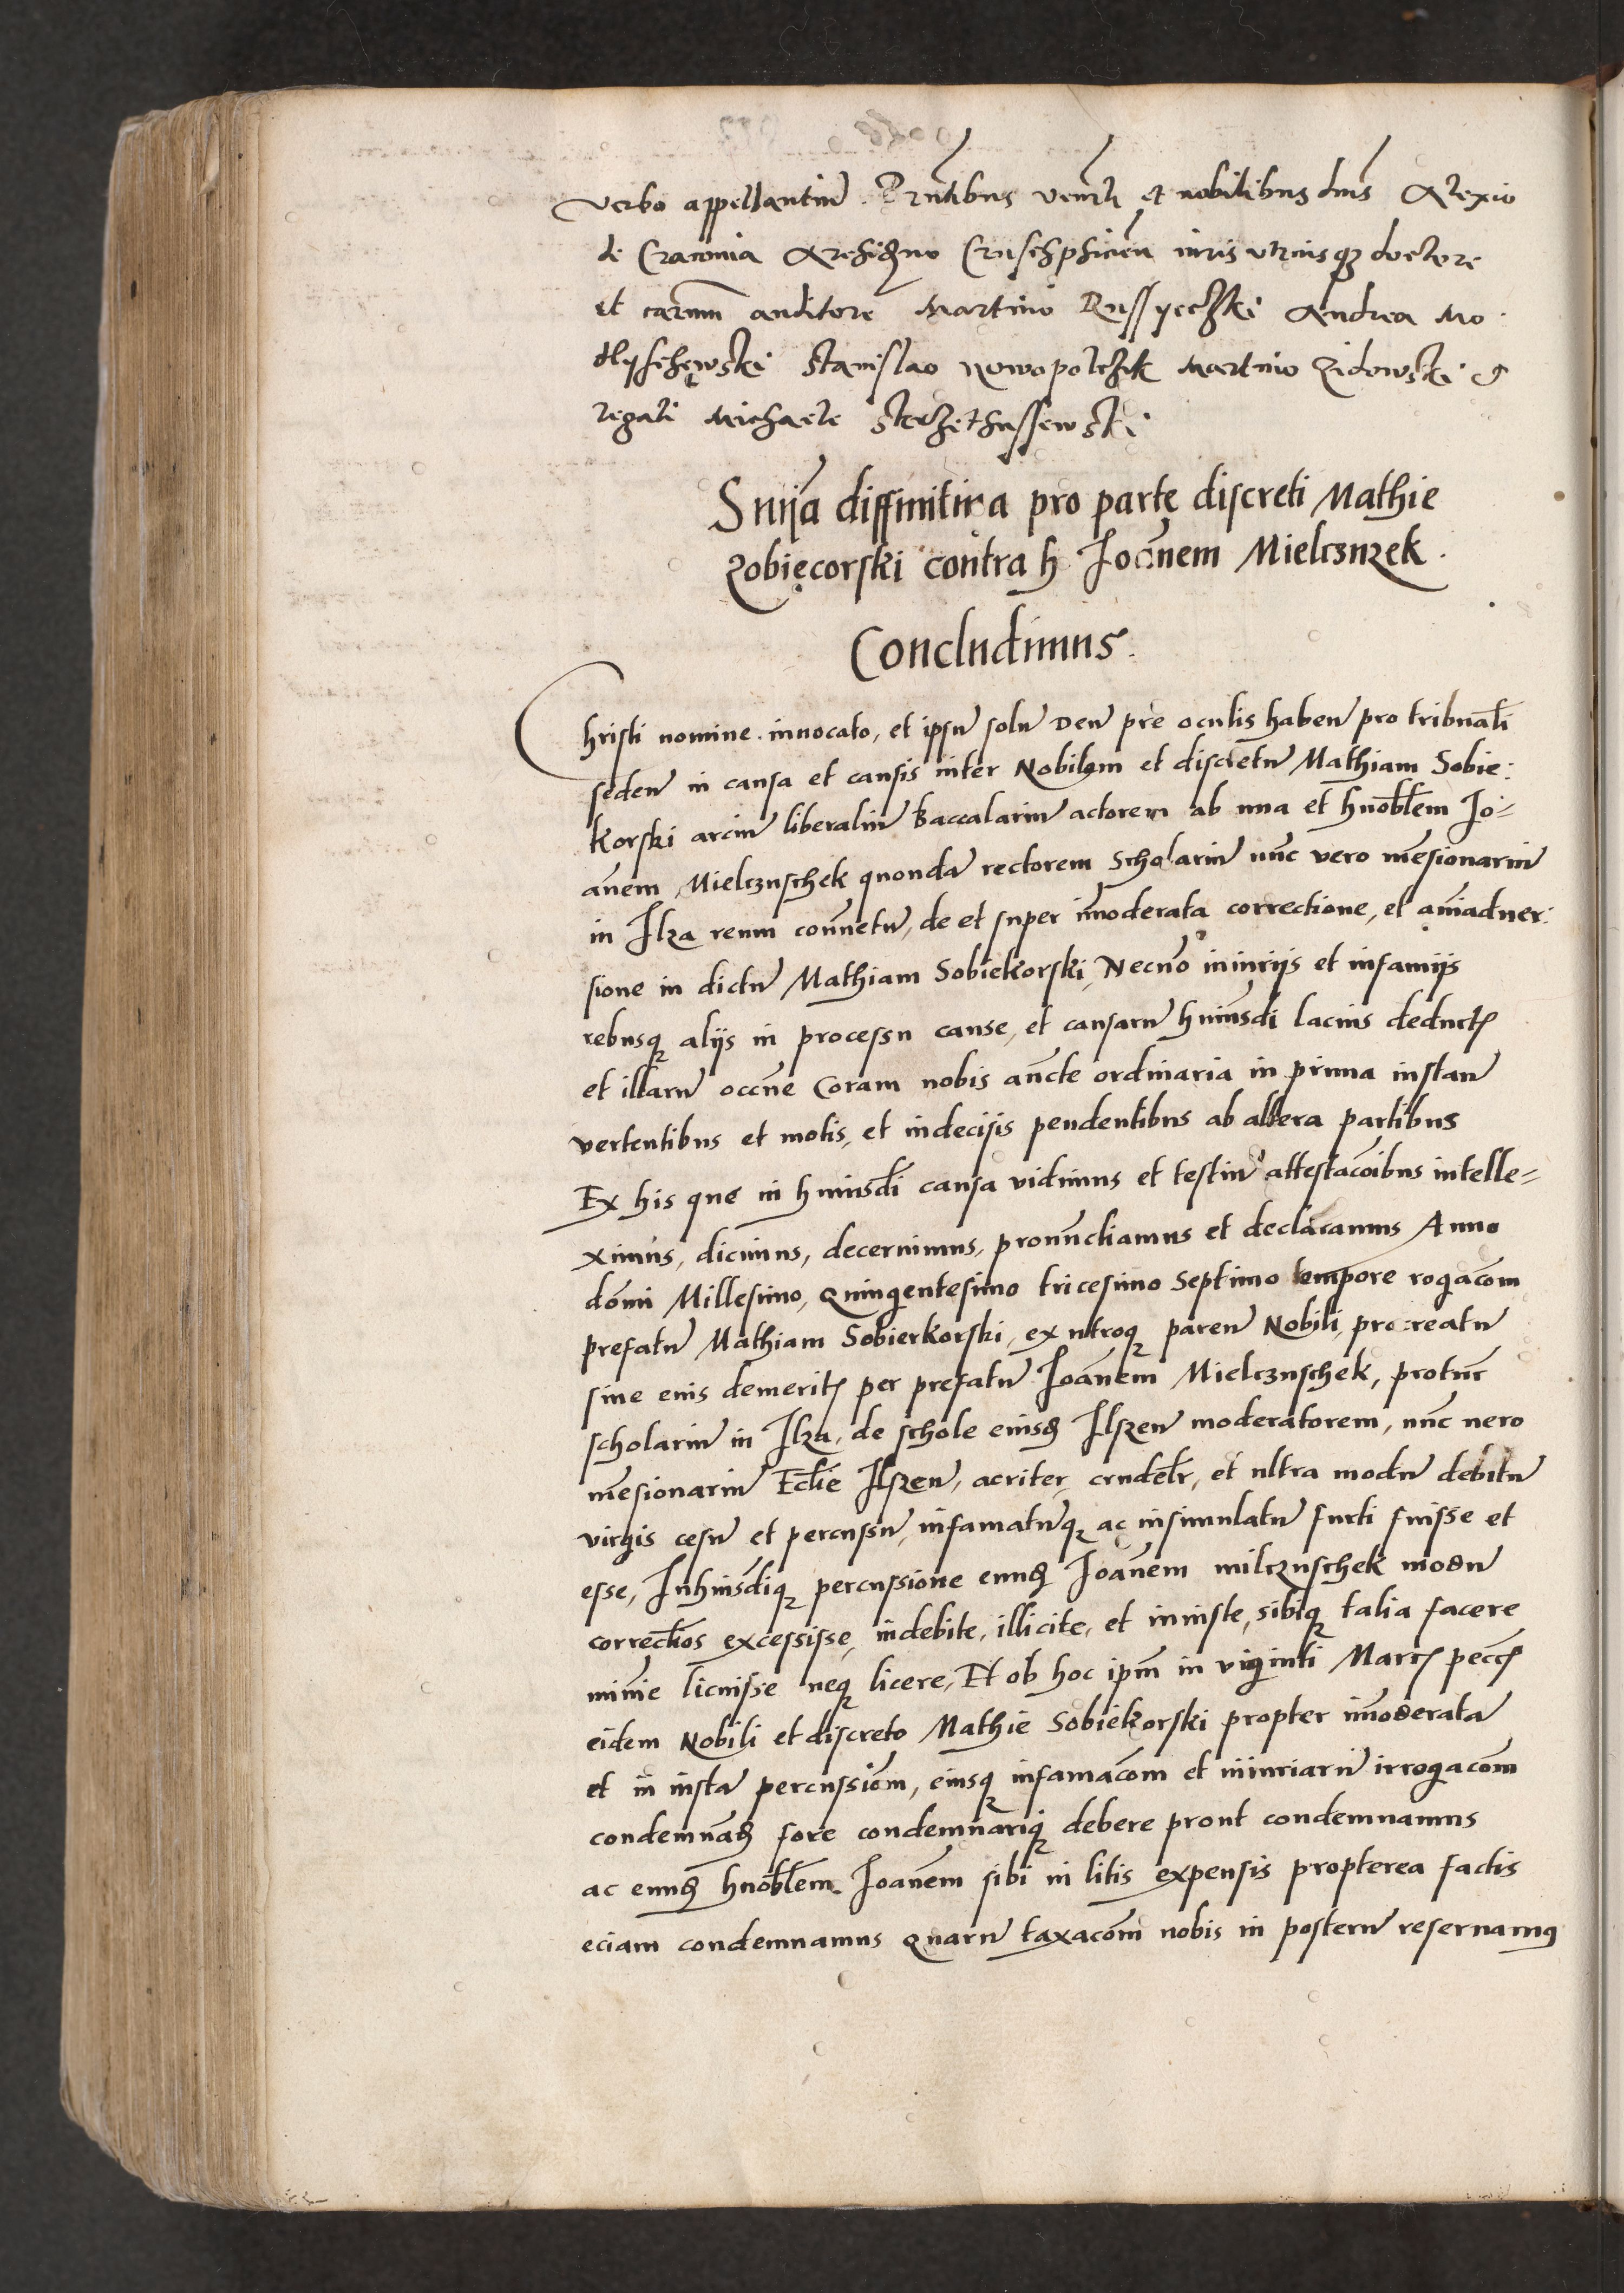 verbo appellantiu Prntibus venrli et nobilibus dnis Alexio
de Cracouia iuris vtriusq doctore
et carum auditore Martino Russyeczki Andrea Mo
dlyschewski Stanislao Nowopolczik Martino Zidowski
Michaele
Snia diffinitiua pro parte discreti Mathie
Zobięcorski contra h Ioannem Mielcznzek.
Concludimus.
Christi nomine inuocato, et ipsu solu Deu pre oculis haben pro tribunali
seden in causa et causis inter Nobilem et discretu Mathiam Sobie:
korski arciu liberaliu Baccalariu actorem ab una et hnoblem Io=
anem Mielcznschek quonda rectorem Scholariu nunc vero mesionariu
in Ilza reum conuetu, de et super imoderata correctione, et aniaduer:
sione in dictu Mathiam Sobiekorski, Necno iniuriis et infamiis
rebusq aliis in processu cause, et causaru huiusdi lacius deduct
et illaru occne Coram nobis aucte ordinaria in prima instan
vertentibus et motis, et indecisis pendentibus ab altera partibus
Ex his que in huiusdi causa vidimus et testiu attestacoibus intelle=
ximus, dicimus, decernimus, pronunctiamus et declaramus Anno
domi Millesimo, Quingentesimo tricesimo Septimo tempore rogacom
prefatu Mathiam Sobierkorski, ex utroq paren Nobili, procreatu
sine eius demerit per prefatu Ioannem Mielcznschek, protunc
scholariu in Ilza, de schole eiusd Ilszen moderatorem, nunc uero
mesionariu Eclie Ilszen, acriter, crudelr, et ultra modu debitu
virgis cesu et percussu, infamatuq ac insimulatu furti fuisse et
esse, Inhuiusdiq percussione eund Ioannem milcznschek modu
correctios excessisse, indebite, illicite, et iniuste, sibiq talia facere
minie licuisse neq licere, Et ob hoc ipm in viginti Marc pecc
eidem Nobili et discreto Mathie Sobiekorski propter imoderata
et in iusta percussiom, eiusq infamacom et iniuriaru irrogacom
condemnad fore condemnariq debere prout condemnamus
ac eund hnoblem Ioanem sibi in litis expensis propterea factis
eciam condemnamus Quaru taxacom nobis in posteru reseruamus